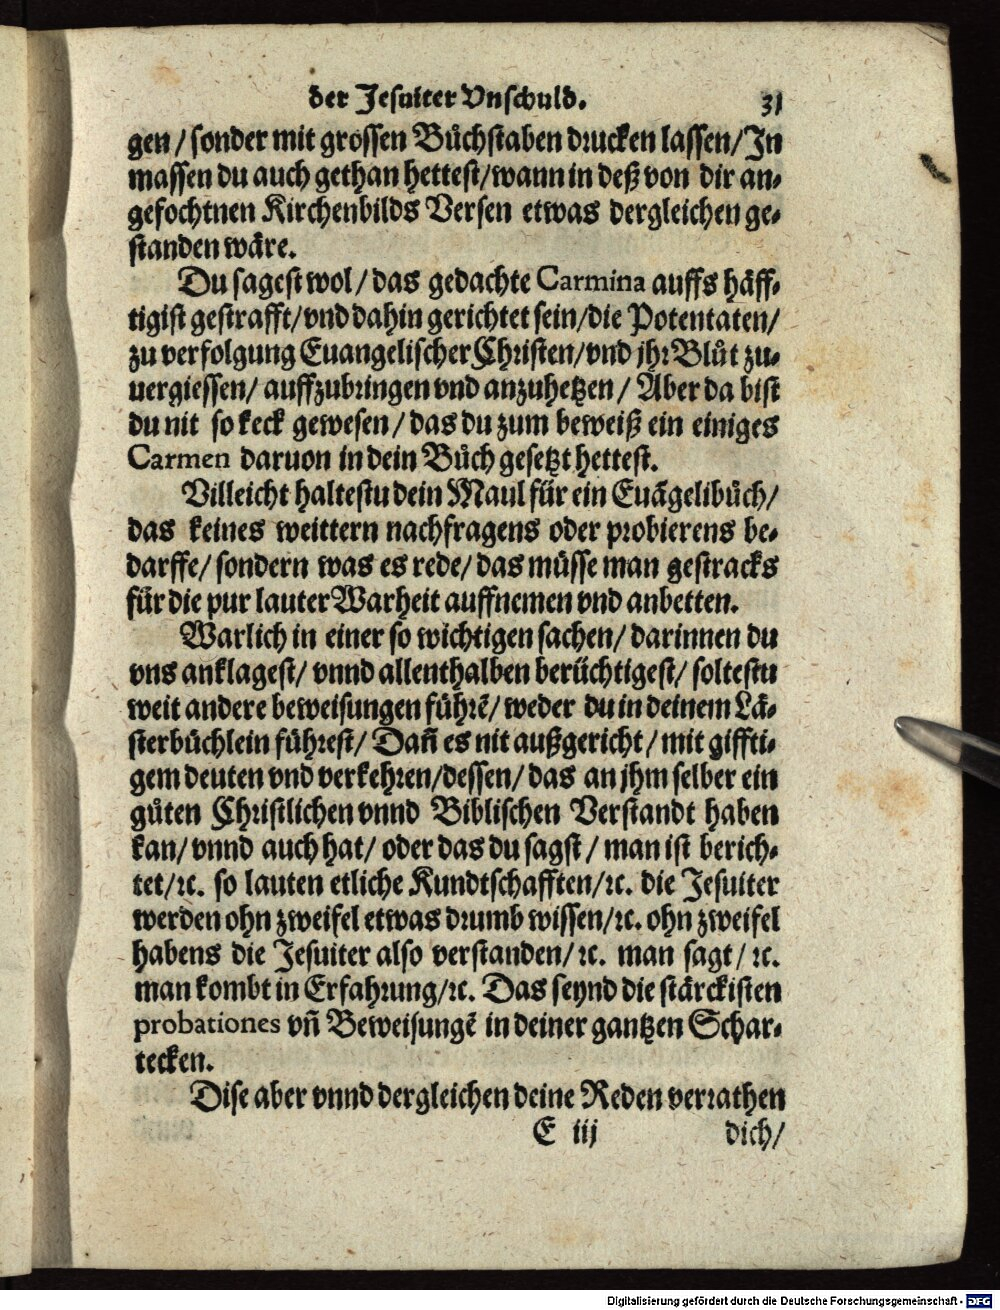 der Jesuiter Vnschuld. 31
gen / sonder mit grossen Bůchstaben drucken lassen / In
massen du auch gethan hettest / wann in deß von dir an-
gefochtnen Kirchenbilds Versen etwas dergleichen ge-
standen wäre.
Du sagest wol / das gedachte Carmina auffs häff-
tigist gestrafft / vnd dahin gerichtet sein / die Potentaten /
zu verfolgung Euangelischer Christen / vnd jhr Blůt zu-
uergiessen / auffzubringen vnd anzuhetzen / Aber da bist
du nit so keck gewesen / das du zum beweiß ein einiges
Carmen daruon in dein Bůch gesetzt hettest.
Villeicht haltestu dein Maul für ein Euãgelibůch /
das keines weittern nachfragens oder probierens be-
darffe / sondern was es rede / das müsse man gestracks
für die pur lauter Warheit auffnemen vnd anbetten.
Warlich in einer so wichtigen sachen / darinnen du
vns anklagest / vnnd allenthalben berüchtigest / soltestu
weit andere beweisungen führẽ / weder du in deinem Lä-
sterbüchlein führest / Dañ es nit außgericht / mit giffti-
gem deuten vnd verkehren / dessen / das an jhm selber ein
gůten Christlichen vnnd Biblischen Verstandt haben
kan / vnnd auch hat / oder das du sagst / man ist berich-
tet / ꝛc. so lauten etliche Kundtschafften / ꝛc. die Jesuiter
werden ohn zweifel etwas drumb wissen / ꝛc. ohn zweifel
habens die Jesuiter also verstanden / ꝛc. man sagt / ꝛc.
man kombt in Erfahrung / ꝛc. Das seynd die stärckisten
probationes vñ Beweisungẽ in deiner gantzen Schar-
tecken.
Dise aber vnnd dergleichen deine Reden verrathen
E iij dich /
Digitalisierung gefördert durch die Deutsche Forschungsgemeinschaft - DFG